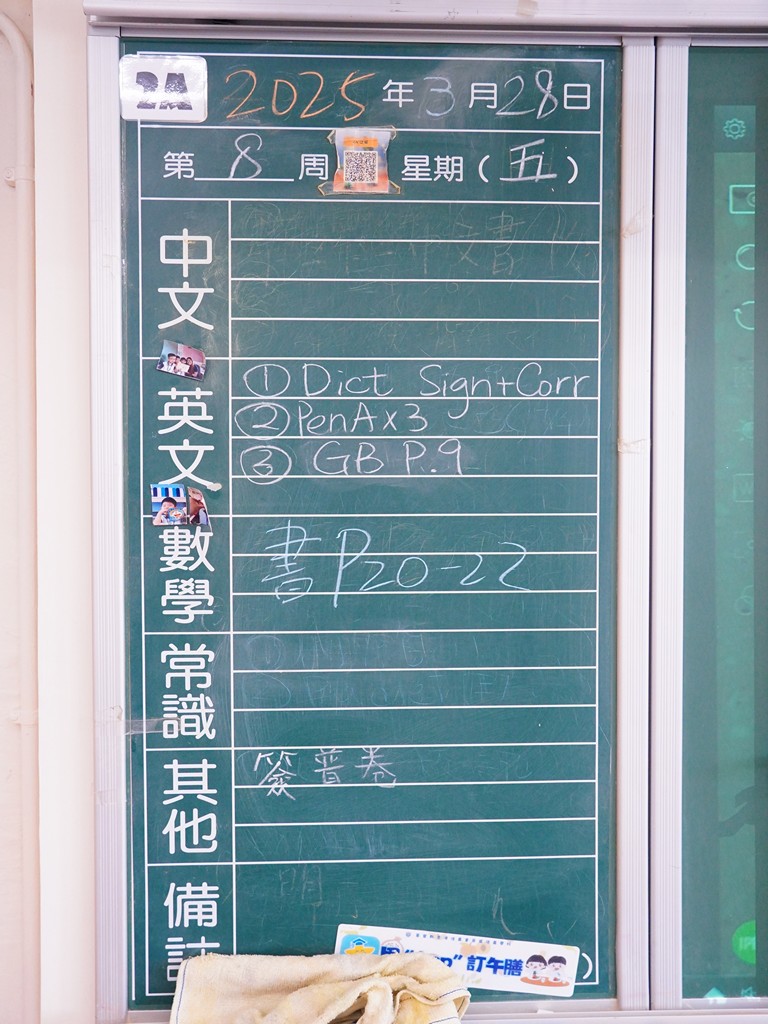 2A 2025年3月28日
第8周 星期(五)
中文
英文
① Dict Sign+Corr
② PenA x3
③ GB P.9
數學
書P20-22
常識
其他
簽普卷
備
訂午膳